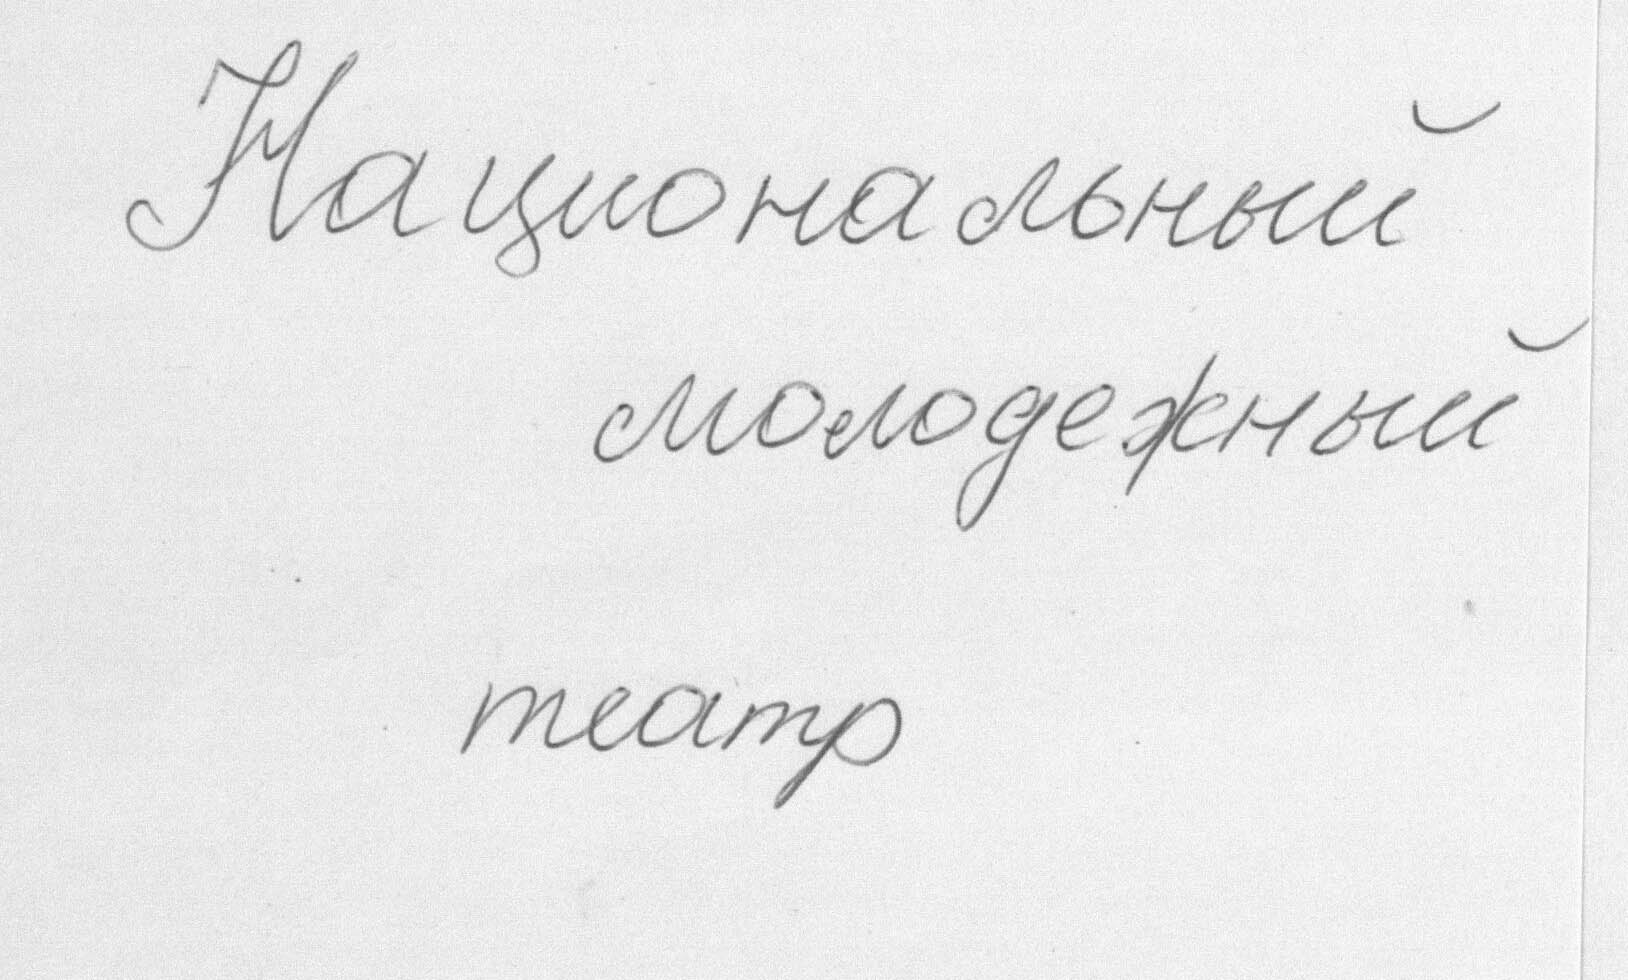 Национальный
молодежный
театр